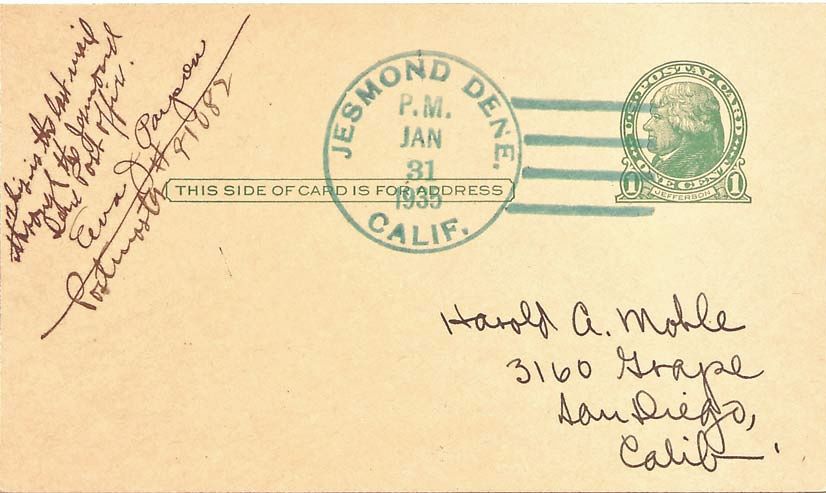 This is the last mail
through the Jesmond
Dene Post office.
Eva J
Postmaster
JESMOND DENE.
P.M.
JAN
31
1935
CALIF.
THIS SIDE OF CARD IS FOR ADDRESS
U.S. POSTAL CARD
1 JEFFERSON 1
ONE CENT
Harold A. Moble
3160 Grape
San Diego,
Calif.